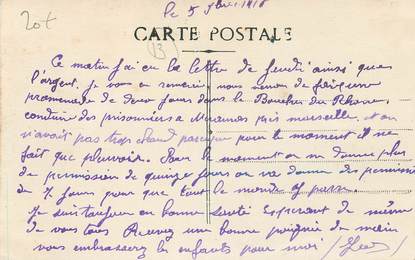 20f
le 5
CARTE POSTALE
(B)
Ce matin j'ai eu la lettre de jeudi ainsi que
l'argent. je vous en remercie, nous venon de faire une
promenade de deux jours dans le Bouches du Rhone.
conduire des prisonniers a Miramas près marseille. et on
n'avait pas trop chaud parceque pour le moment il ne
fait que pleuvoir. Pour le moment on ne donne plus
de permission de quinze jours on ne donne de permission
de 7 jours pour que tout le monde y passe.
je suis toujour en bonne santé Esperant de même
de vous tous Recevez une bonne poignée de main
vous embrasserez les enfants pour moi